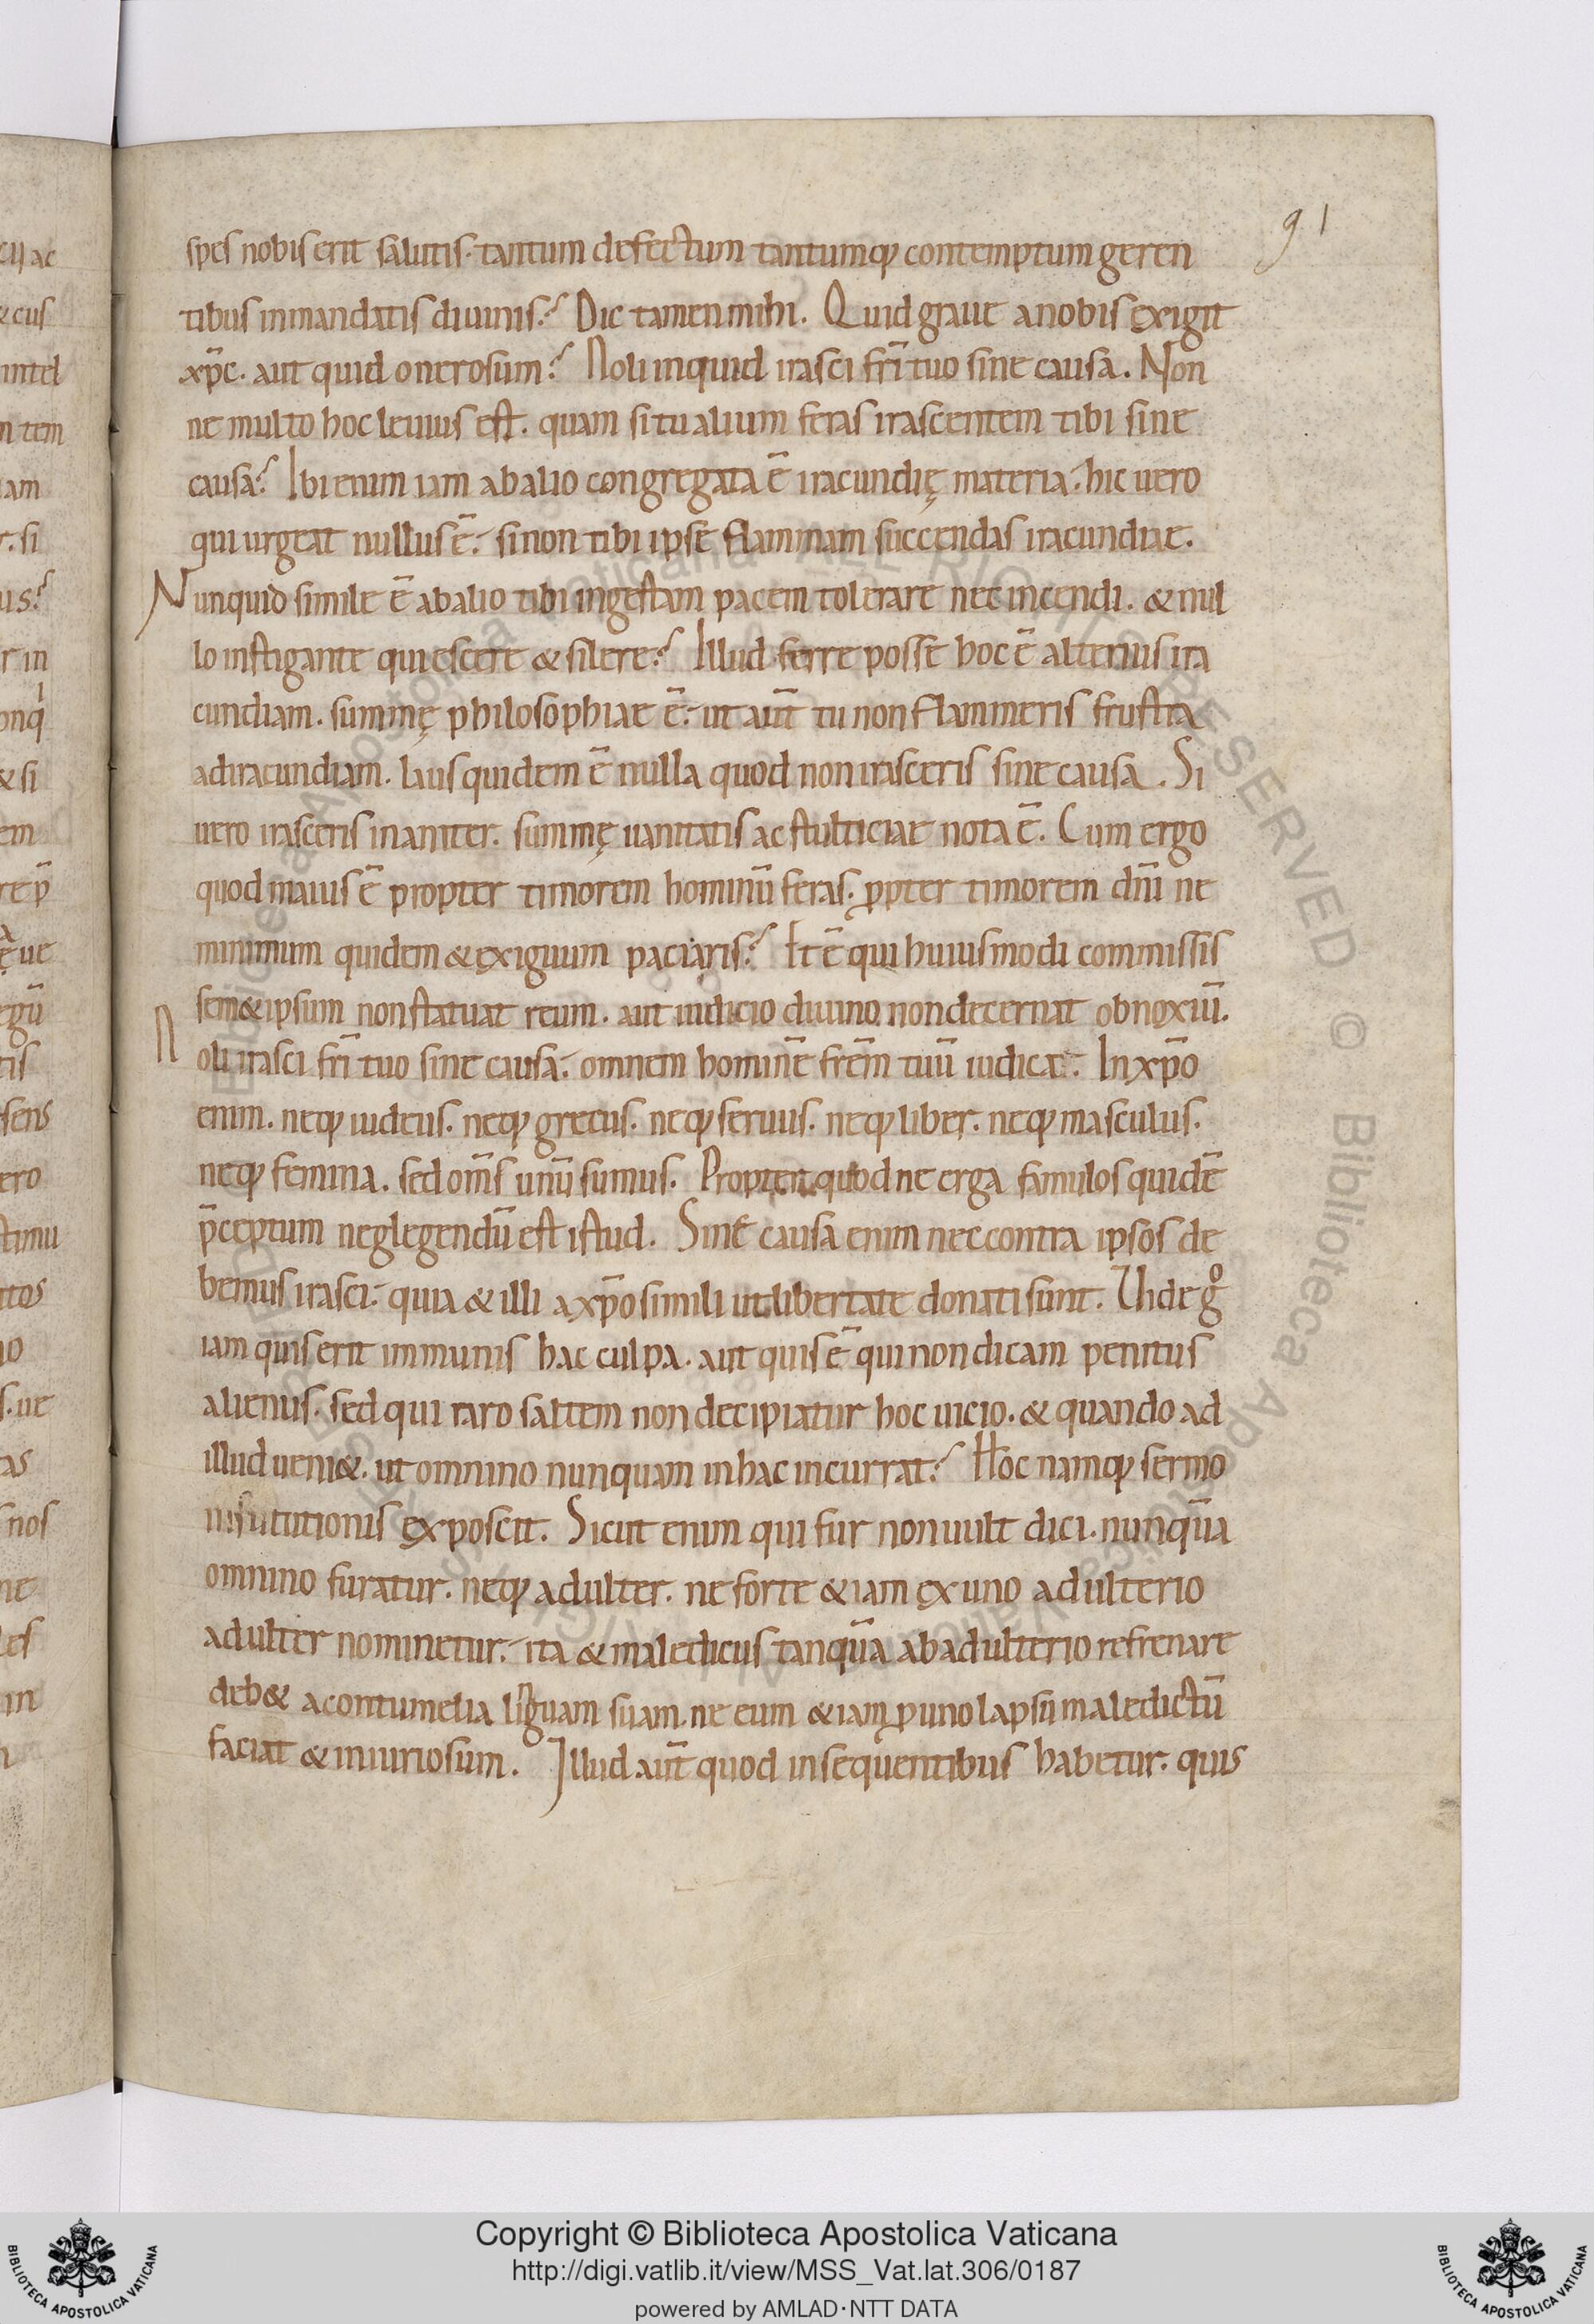 91
spes nobis erit salutis. tantum defectum tantumq; contemptum geren
tibus in mandatis diuinis? Dic tamen mihi. Quid graue a nobis exigit
xp̄c. aut quid onerosum? Noli inquid irasci fr̄i tuo sine causa. Non
ne multo hoc leuius est. quam si tu alium feras irascentem tibi sine
causa? Ibi enim iam ab alio congregata ē iracundię materia. hic uero
qui urgeat nullus ē. si non tibi ipse flammam succendas iracundiae.
Nunquid simile ē ab alio tibi ingestam pacem tolerare nec incendi. & nul
lo instigante quiescere & silere? Illud ferre posse hoc ē alterius ira
cundiam. summę philosophiae ē. ut aūt tu non flammeris frustra
ad iracundiam. laus quidem ē nulla quod non irasceris sine causa. Si
uero irasceris inaniter. summę uanitatis ac stulticiae nota ē. Cum ergo
quod maius ē propter timorem hominū feras. ꝓpter timorem dn̄i ne
minimum quidem & exiguum paciaris? Et ē qui huiusmodi commissis
sem&ipsum non statuat reum. aut iudicio diuino non decernat obnoxiū.
Noli irasci fr̄i tuo sine causa. omnem hominē frēm tuū iudica. In xp̄o
enim. neq; iudeus. neq; grecus. neq; seruus. neq; liber. neq; masculus.
neq; femina. sed om̄s unū sumus. Propter quod ne erga famulos quidē
p̄ceptum neglegendū est istud. Sine causa enim nec contra ipsos de
bemus irasci. quia & illi a xp̄o simili ut libertate donati sunt. Unde gͦ
iam quis erit immunis hac culpa. aut quis ē qui non dicam penitus
alienus. sed qui raro saltem non decipiatur hoc uicio. & quando ad
illud ueni&. ut omnino nunquam in hac incurrat? Hoc namq; sermo
institutionis exposcit. Sicut enim qui fur non uult dici. nunquā
omnino furatur. neq; adulter. ne forte &iam ex uno adulterio
adulter nominetur. ita & maledicus tanquā ab adulterio refrenare
deb& a contumelia linguam suam. ne eum &iam ꝓ uno lapsu maledictū
faciat & iniuriosum. Illud aūt quod in sequentibus habetur. quis
Copyright © Biblioteca Apostolica Vaticana
http://digi.vatlib.it/view/MSS_Vat.lat.306/0187
powered by AMLAD·NTT DATA
BIBLIOTECA APOSTOLICA VATICANA
BIBLIOTECA APOSTOLICA VATICANA